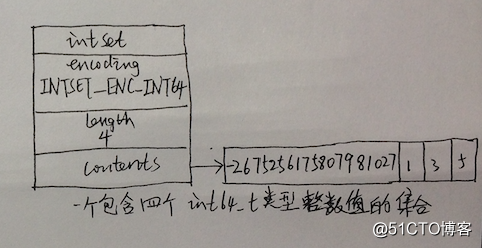 intset
encoding
INTSET_ENC_INT64
length
4
contents
-2675256175807981027 1 3 5
一个包含四个 int64_t类型整数值的集合
@51CTO博客